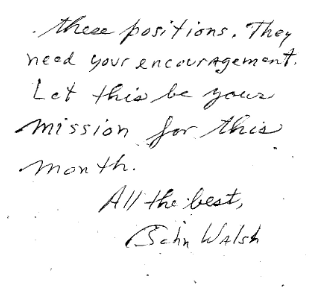 these positions. They
need your encouragement.
Let this be your
mission for this
month.
All the best,
John Walsh